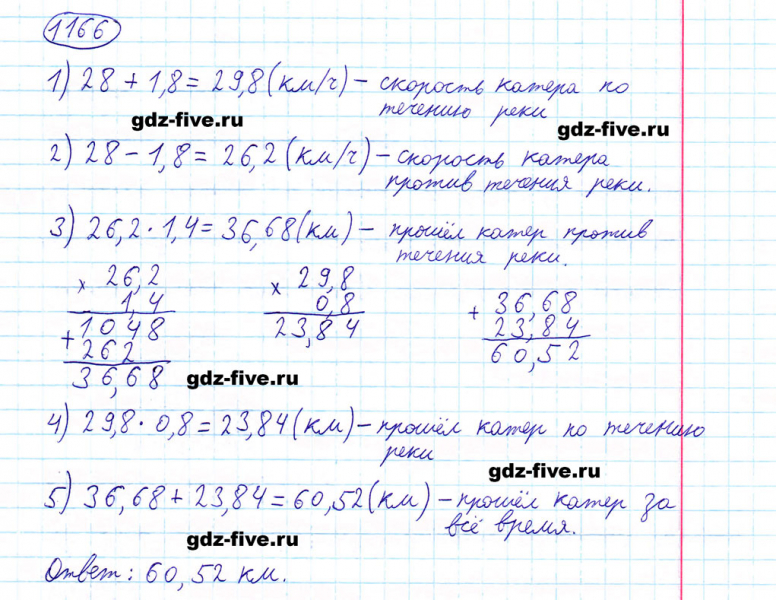 1166
1) 28 + 1,8 = 29,8 (км/ч) – скорость катера по
течению реки
gdz-five.ru
gdz-five.ru
2) 28 – 1,8 = 26,2 (км/ч) – скорость катера
против течения реки.
3) 26,2 · 1,4 = 36,68 (км) – прошёл катер против
течения реки.
× 26,2
1,4
+ 1048
262
36,68
× 29,8
0,8
23,84
+ 36,68
23,84
60,52
gdz-five.ru
4) 29,8 · 0,8 = 23,84 (км) – прошёл катер по течению
реки
gdz-five.ru
5) 36,68 + 23,84 = 60,52 (км) – прошёл катер за
всё время.
gdz-five.ru
Ответ: 60,52 км.